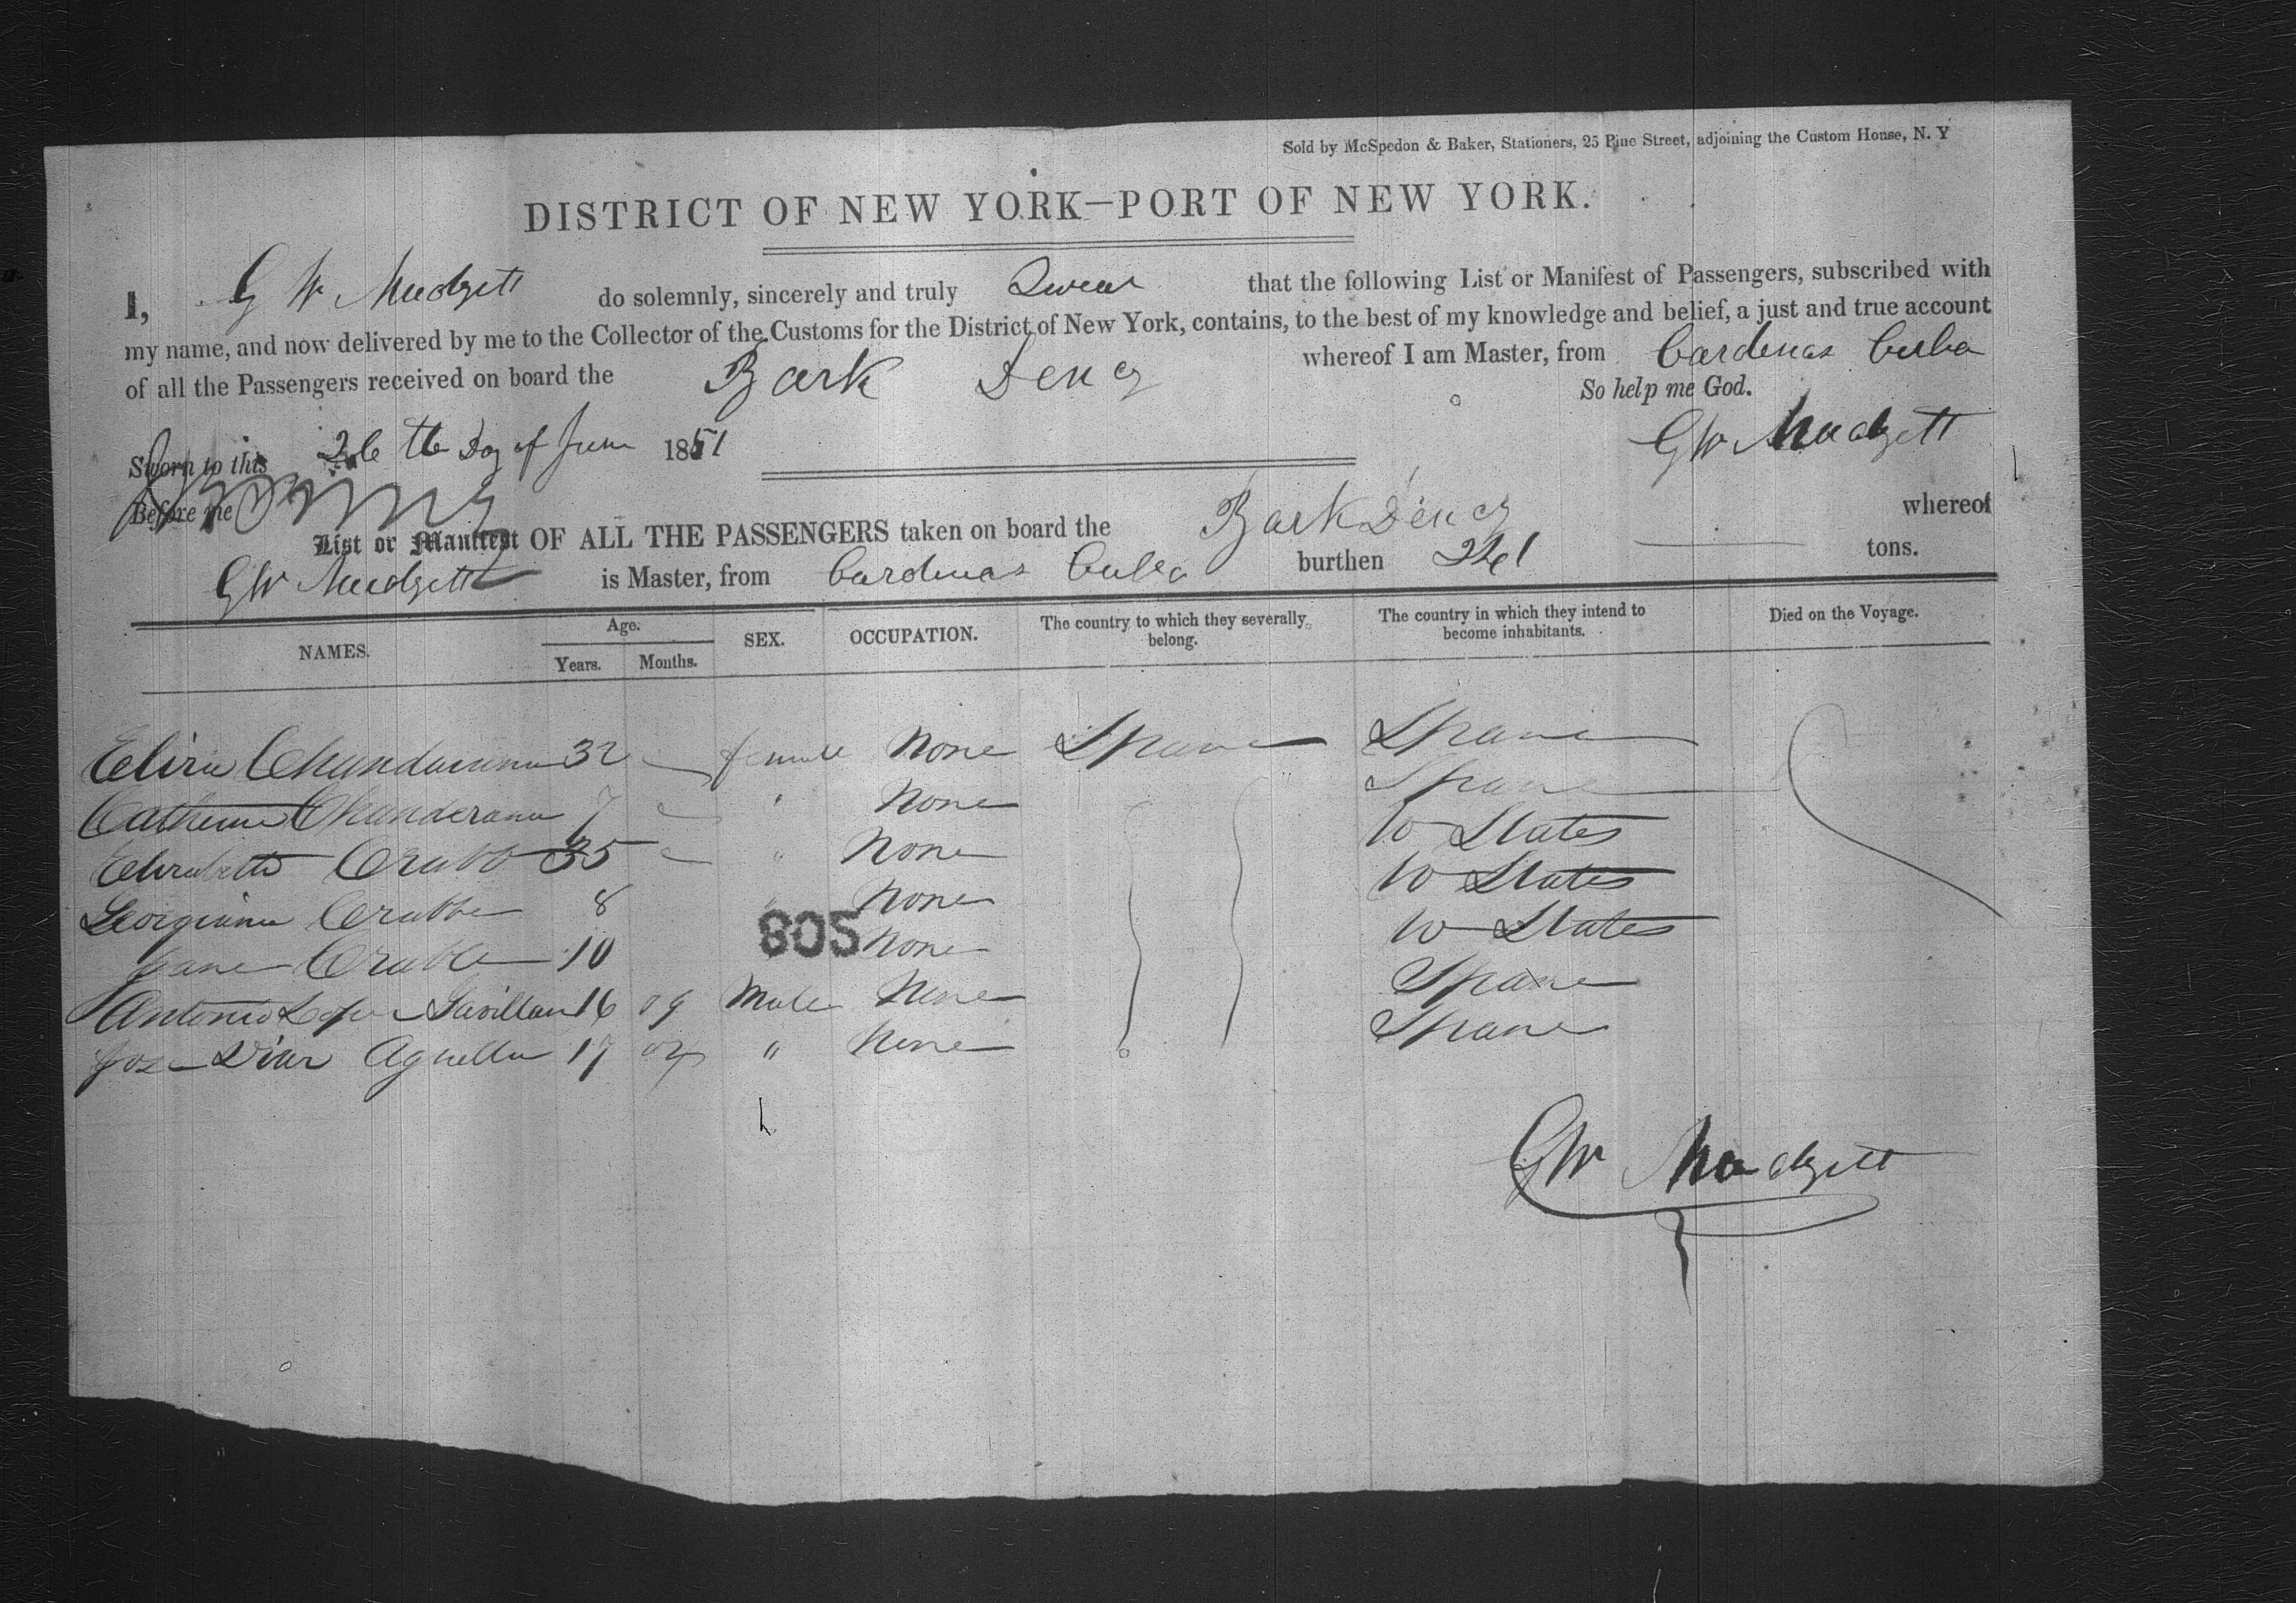 Sold by McSpedon & Baker, Stationers, 25 Pine Street, adjoining the Custom House, N. Y
DISTRICT OF NEW YORK—PORT OF NEW YORK.
I, G W Mudgett do solemnly, sincerely and truly Swear that the following List or Manifest of Passengers, subscribed with
my name, and now delivered by me to the Collector of the Customs for the District of New York, contains, to the best of my knowledge and belief, a just and true account
of all the Passengers received on board the Bark whereof I am Master, from Cardenas Cuba
So help me God.
Sworn to this 26 th Day of June 1851
GW Mudgett
Before me
List or Manifest OF ALL THE PASSENGERS taken on board the Bark whereof
GW Mudgett is Master, from Cardenas Cuba burthen tons.
NAMES. Age. Years. Months. SEX. OCCUPATION. The country to which they severally belong. The country in which they intend to become inhabitants. Died on the Voyage.
32 female None Spane Spane
Catherine 7 " None Spane
Elizabeth Crabb 35 " None U States
Georgiana Crabb 8 " None U States
Jane Crabb 10 None U States
805
Antonio 16 09 Male None Spane
Jose 17 " None Spane
GW Mudgett